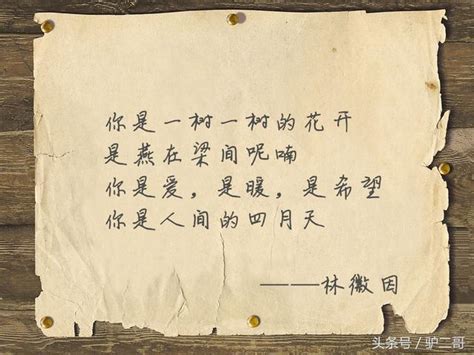 你是一树一树的花开
是燕在梁间呢喃
你是爱，是暖，是希望
你是人间的四月天
——林徽因
头条号/驴二哥